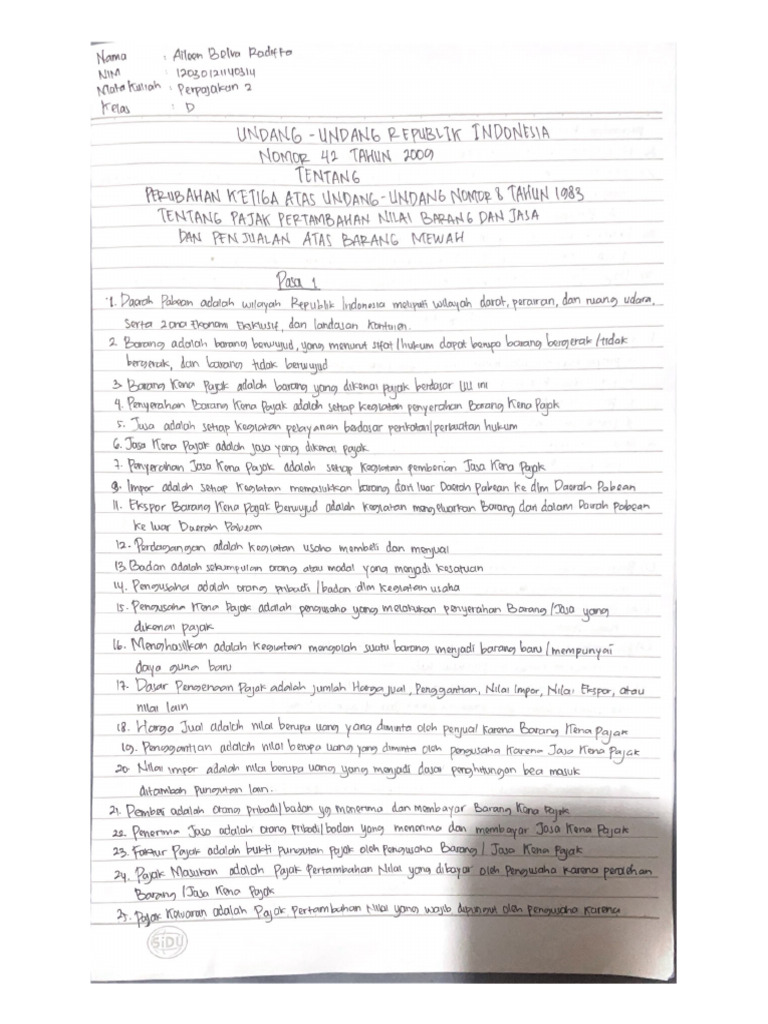 Nama : Aileen Belva Raditta
NIM : 12030121140314
Mata Kuliah : Perpajakan 2
Kelas : D
UNDANG - UNDANG REPUBLIK INDONESIA
NOMOR 42 TAHUN 2009
TENTANG
PERUBAHAN KETIGA ATAS UNDANG - UNDANG NOMOR 8 TAHUN 1983
TENTANG PAJAK PERTAMBAHAN NILAI BARANG DAN JASA
DAN PENJUALAN ATAS BARANG MEWAH
Pasa 1
1. Daerah Pabean adalah wilayah Republik Indonesia meliputi wilayah darat, perairan, dan ruang udara,
serta Zona Ekonomi Eksklusif, dan landasan kontinen.
2. Barang adalah barang berwujud, yang menurut sifat/hukum dapat berupa barang bergerak/tidak
bergerak, dan barang tidak berwujud
3. Barang Kena Pajak adalah barang yang dikenai pajak berdasar UU ini
4. Penyerahan Barang Kena Pajak adalah setiap kegiatan penyerahan Barang Kena Pajak
5. Jasa adalah setiap kegiatan pelayanan berdasar perikatan/perbuatan hukum
6. Jasa Kena Pajak adalah jasa yang dikenai pajak
7. Penyerahan Jasa Kena Pajak adalah setiap kegiatan pemberian Jasa Kena Pajak
9. Impor adalah setiap kegiatan memasukkan barang dari luar Daerah Pabean ke dlm Daerah Pabean
11. Ekspor Barang Kena Pajak Berwujud adalah kegiatan mengeluarkan Barang dari dalam Daerah Pabean
ke luar Daerah Pabean
12. Perdagangan adalah kegiatan usaha membeli dan menjual
13 Badan adalah sekumpulan orang atau modal yang menjadi kesatuan
14. Pengusaha adalah orang pribadi/badan dlm kegiatan usaha
15. Pengusaha Kena Pajak adalah pengusaha yang melakukan penyerahan Barang/Jasa yang
dikenai pajak
16. Menghasilkan adalah kegiatan mengolah suatu barang menjadi barang baru/mempunyai
daya guna baru
17. Dasar Pengenaan Pajak adalah jumlah Harga jual, Penggantian, Nilai Impor, Nilai Ekspor, atau
nilai lain
18. Harga Jual adalah nilai berupa uang yang diminta oleh penjual karena Barang Kena Pajak
19. Penggantian adalah nilai berupa uang yang diminta oleh pengusaha karena Jasa Kena Pajak
20. Nilai impor adalah nilai berupa uang yang menjadi dasar penghitungan bea masuk
ditambah pungutan lain.
21. Pembeli adalah orang pribadi/badan yg menerima dan membayar Barang Kena Pajak
22. Penerima Jasa adalah orang pribadi/badan yang menerima dan membayar Jasa Kena Pajak
23. Faktur Pajak adalah bukti pungutan pajak oleh Pengusaha Barang/ Jasa Kena Pajak
24. Pajak Masukan adalah Pajak Pertambahan Nilai yang dibayar oleh Pengusaha karena perolehan
Barang/Jasa Kena Pajak
25. Pajak Kawaran adalah Pajak Pertambahan Nilai yang wajib dipungut oleh Pengusaha karena
SiDU